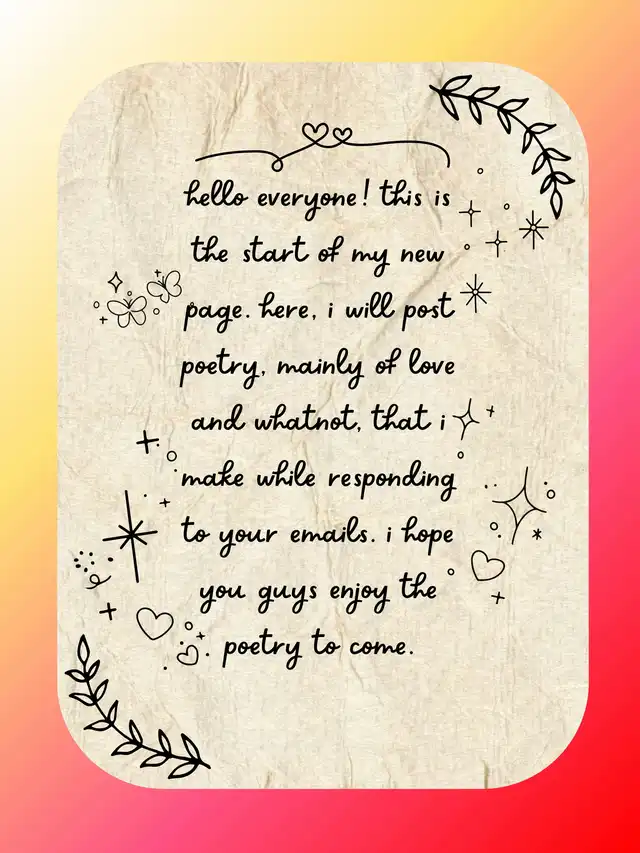 hello everyone! this is
the start of my new
page. here, i will post
poetry, mainly of love
and whatnot, that i
make while responding
to your emails. i hope
you guys enjoy the
poetry to come.